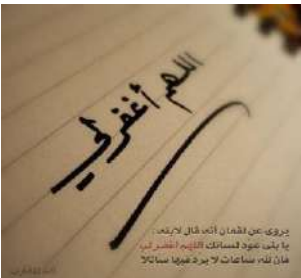 اللهم أغفر لي
يروى عن لقمان أنه قال لابنه :
يا بني عود لسانك اللهم اغفر لي
فان لله ساعات لا يرد فيها سائلا